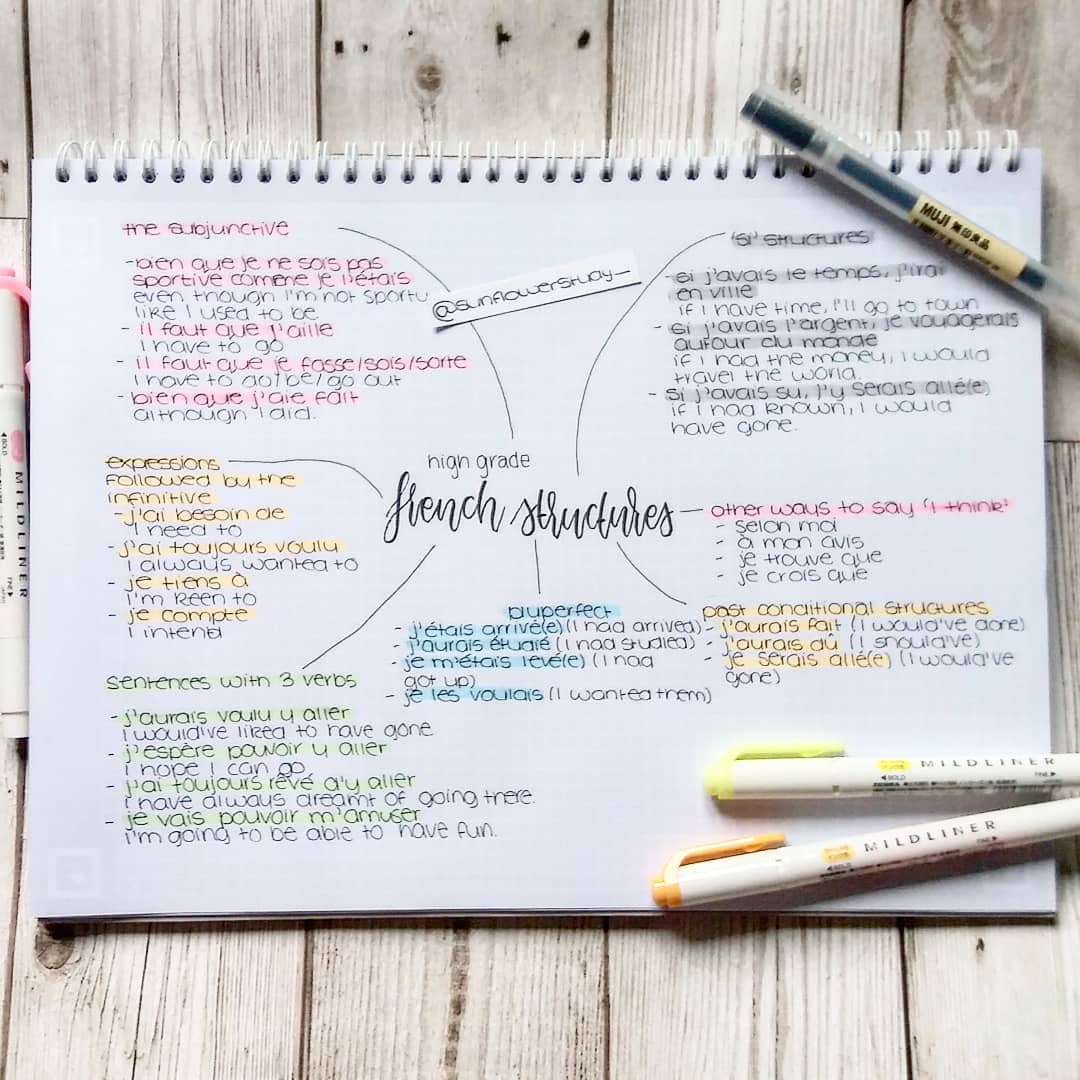 the subjunctive
-bien que je ne sois pas
sportive comme je l'étais
even though I'm not sporty
like I used to be
- il faut que j'aille
I have to go
- il faut que je fasse/sois/sorte
I have to do/be/go out
- bien que j'aie fait
although I did.
@sunflowerstudy_
'si' structures
- si j'avais le temps, j'irai
en ville
if I have time, I'll go to town
- si j'avais l'argent, je voyagerais
autour du monde
if I had the money, I would
travel the world.
- si j'avais su, j'y serais allé(e)
if I had known, I would
have gone.
high grade
french structures
expressions
followed by the
infinitive
- j'ai besoin de
I need to
- j'ai toujours voulu
I always wanted to
- je tiens à
I'm keen to
- je compte
I intend
other ways to say 'I think'
- selon moi
- à mon avis
- je trouve que
- je crois que
pluperfect
- j'étais arrivé(e) (I had arrived)
- j'aurais étudié (I had studied)
- je m'étais levé(e) (I had
got up)
- je les voulais (I wanted them)
past conditional structures
- j'aurais fait (I would've done)
- j'aurais dû (I should've)
- je serais allé(e) (I would've
gone)
sentences with 3 verbs
- j'aurais voulu y aller
I would've liked to have gone
- j'espère pouvoir y aller
I hope I can go
- j'ai toujours rêvé d'y aller
I have always dreamt of going there.
- je vais pouvoir m'amuser
I'm going to be able to have fun.
MUJI 無印良品
MILDLINER
BOLD
FINE
MILDLINER
BOLD
ZEBRA
FINE
MILDLINER
BOLD
FINE